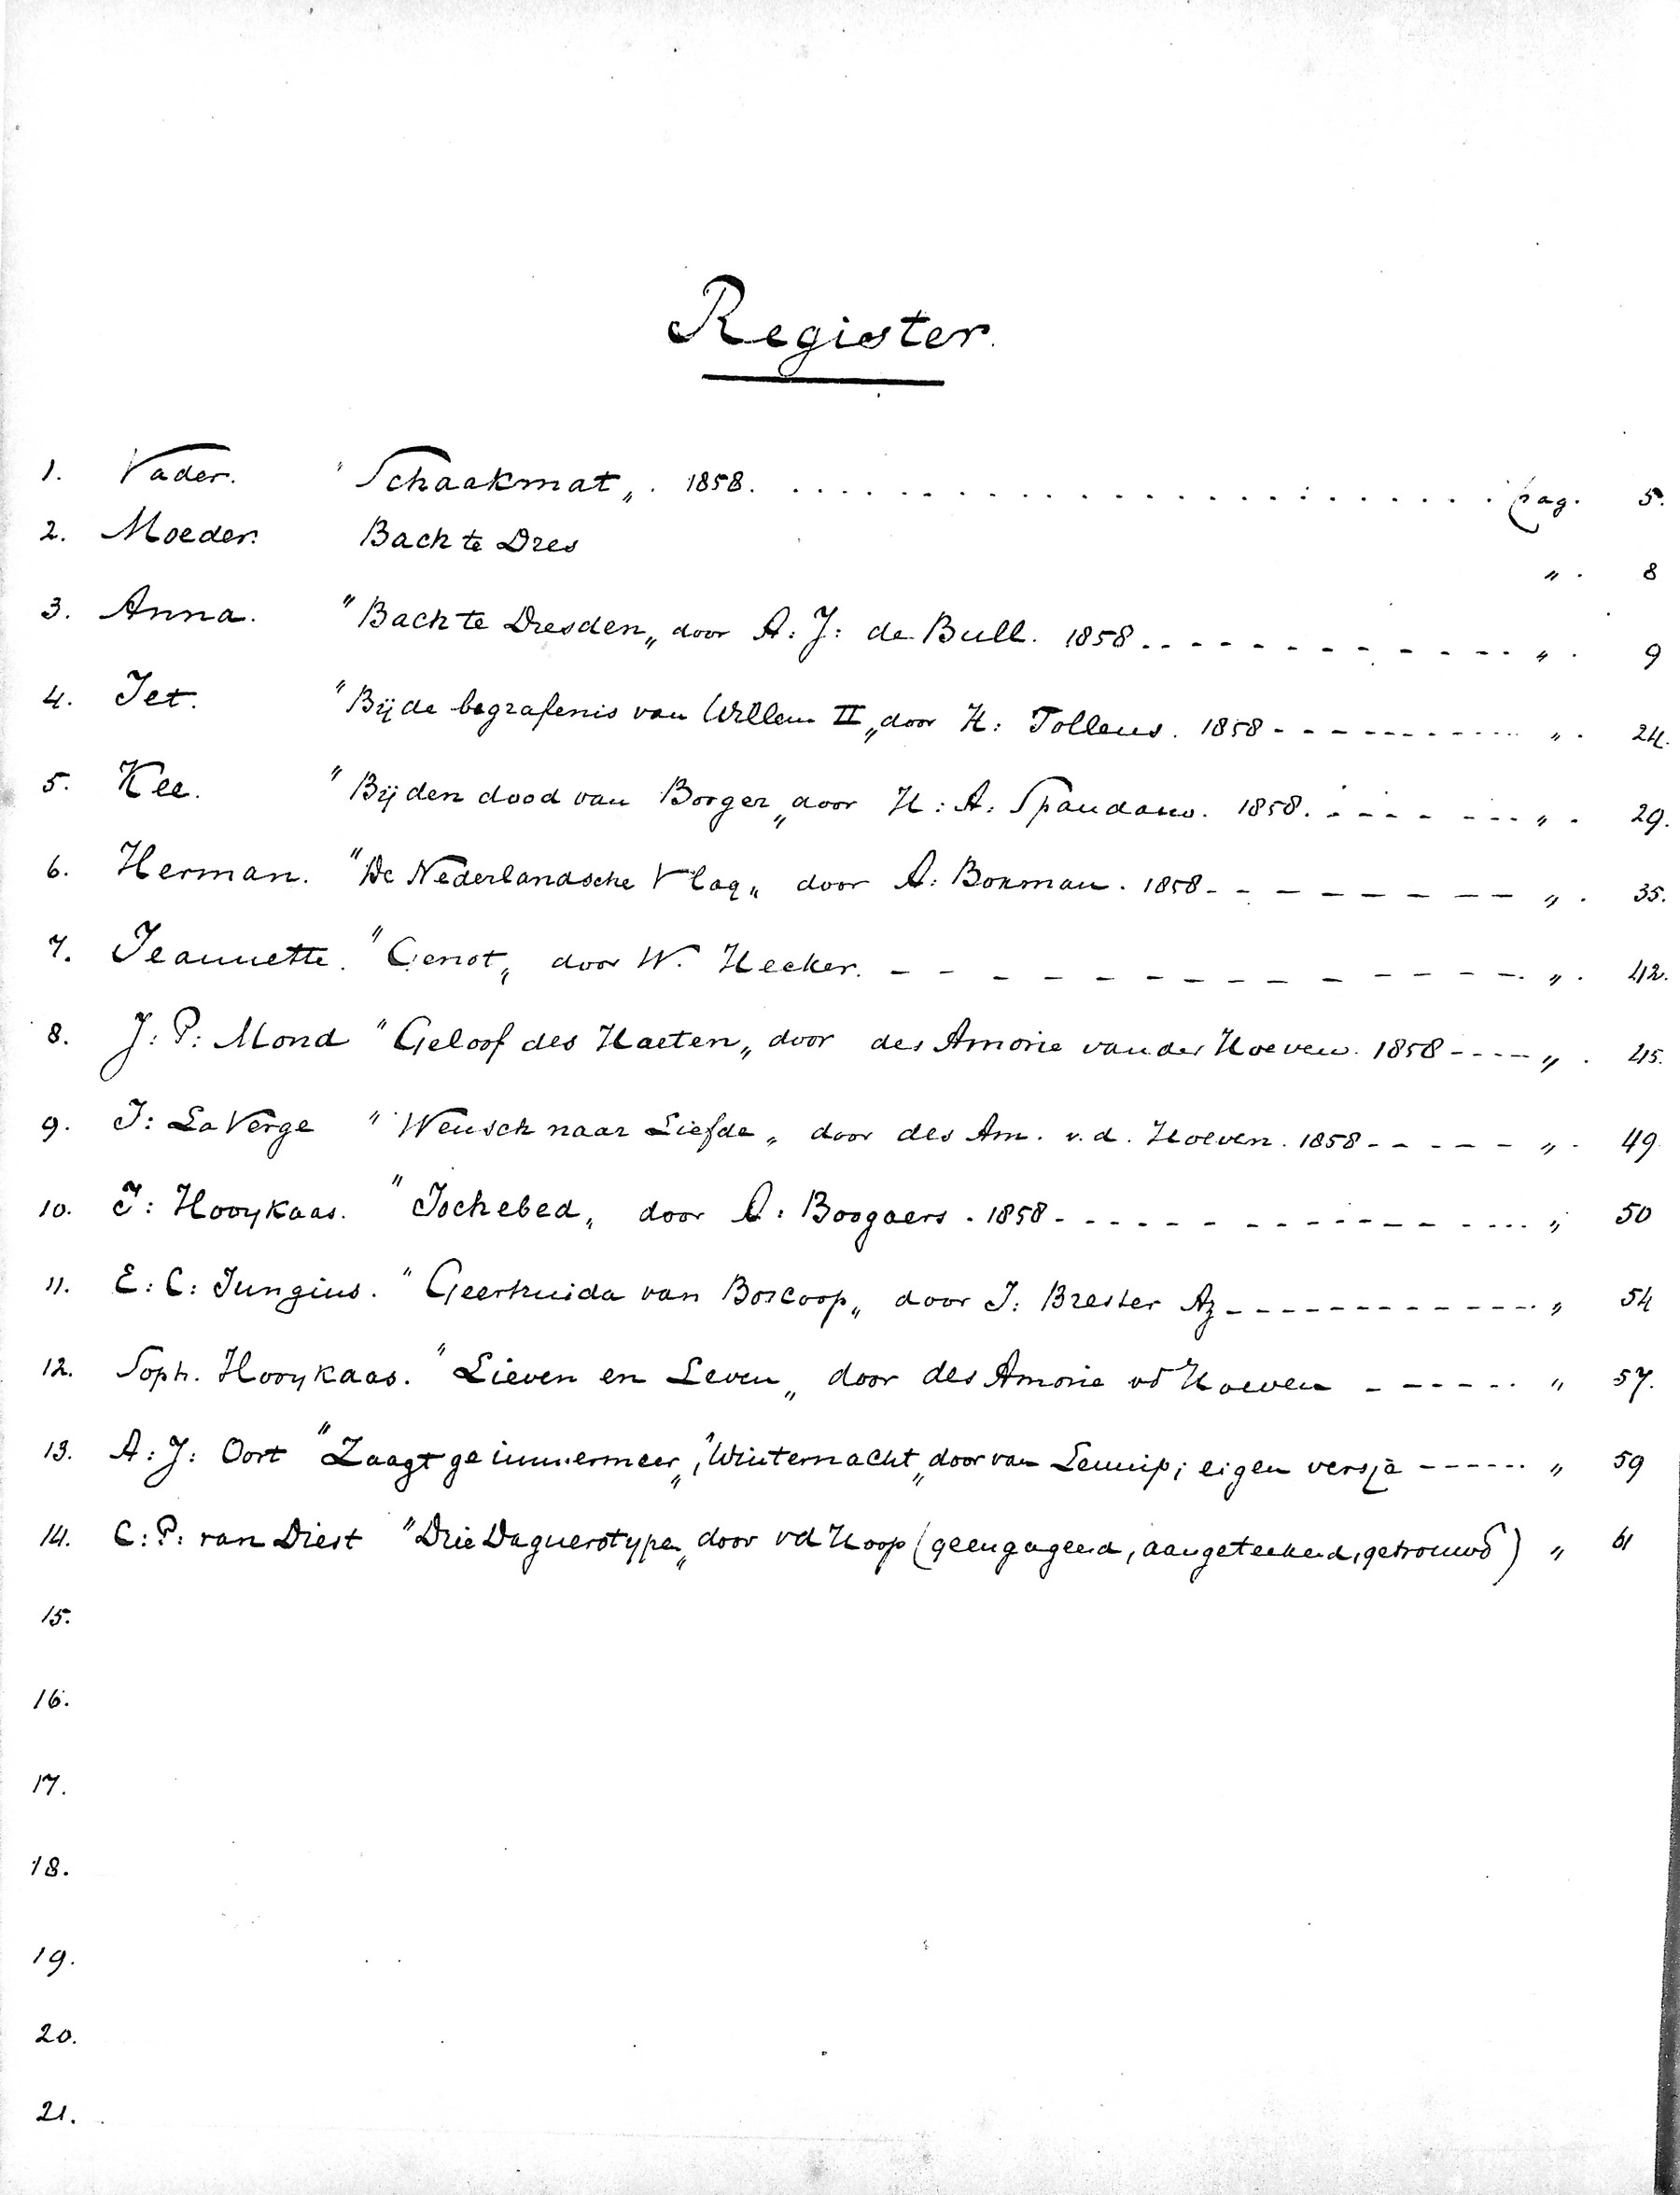 Register.
1. Vader. "Schaakmat„. 1858. . . . . . . . . . . . . . . . . . . . . . . . pag. 5.
2. Moeder. Bach te Dres „. 8
3. Anna. "Bach te Dresden„ door A: J: de Bull. 1858. - - - - - - - - - - - „. 9
4. Jet. "Bij de begrafenis van Willem II„ door H: Tollens. 1858 - - - - - - - - - - - „. 24.
5. Kee. "Bij den dood van Borger„ door H: A: Spandauw. 1858. - - - - - - - - „. 29.
6. Herman. "De Nederlandsche Vlag„ door A: Boxman. 1858 - - - - - - - - „. 35.
7. Jeannette. "Genot„ door W. Hecker. - - - - - - - - - - - - - - „. 42.
8. J: P: Mond "Geloof des Harten„ door des Amorie van der Hoeven. 1858 - - - - „. 45.
9. J: La Verge "Wensch naar Liefde„ door des Am. v. d. Hoeven. 1858 - - - - - „. 49
10. J: Hooykaas. "Jochebed„ door A: Boogaers. 1858 - - - - - - - - - - - - - - - „ 50
11. E: C: Jungius. "Geertruida van Boscoop„ door J: Brester Az - - - - - - - - - - - - - „ 54
12. Soph. Hooykaas. "Lieven en Leven„ door des Amorie vd Hoeven - - - - - - - „ 57.
13. A: J: Oort "Zaagt ge immermeer„, "Winternacht„ door van Lennip; eigen versje - - - - - - „ 59
14. C: P: van Diest "Drie Daguerotypen„ door vd Hoop (geengageerd, aangeteekend, getrouwd) „ 61
15.
16.
17.
18.
19.
20.
21.